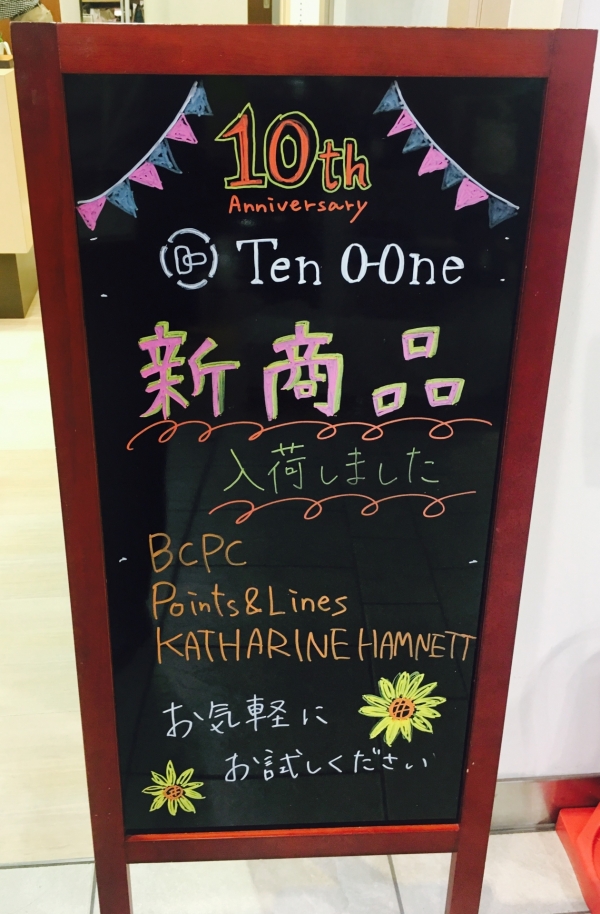 10th
Anniversary
Ten O-One
新商品
入荷しました
BCPC
Points&Lines
KATHARINE HAMNETT
お気軽に
お試しください